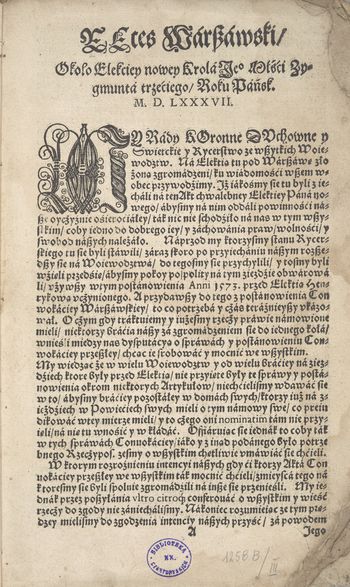 Reces Wárßáwski/
Około Elekciey nowey Krolá Je° Mśći Zy-
gmuntá trzećiego/ Roku Páńsk.
M. D. LXXXVII.
MY Rády KOronne DVchowne y
Swietckie y Rycerstwo ze wßytkich Woie-
wodztw. Ná Elektią tu pod Wárßáwą zło
żoną zgromádzeni/ ku wiádomośći wßem w-
obec przywodźimy. Jż iákosmy sie tu byli z ie-
cháli ná ten Akt chwalebney Elekciey Páná no-
wego/ ábysmy ná nim oddáli powinnośći ná-
ße oyczyznie ośierociáłey/ ták nic nie schodźiło ná nas w tym wßy-
stkim/ coby iedno do dobrego iey/ y záchowánia praw/ wolnośći/ y
swobod náßych należáło. Naprzod my ktorzysmy stanu Rycer-
skiego tu sie byli stáwili/ záraz skoro po przyiechániu náßym rozße-
dßy sie ná Woiewodztwá/ do tegosmy sie przychylili/ y rosmy byli
wźieli przedśie/ ábysmy pokoy pospolity ná tym zieździe obwárowá
li/ vżywßy w tym postánowienia Anni 1573. przed Elektią Hen-
rykową vczynionego. A przydawßy do tego z postánowienia Con
wokáciey Wárßáwskiey/ to co potrzebá y czás teráznieyßy vkázo-
wał. O czym gdy tráktuiemy y iużesmy rzeczy práwie námowione
mieli/ niektorzy brácia náßy zá zgromádzeniem sie do iednego kołá/
wnieśli miedzy nas dysputácyą o spráwách y postánowieniu Con-
wokáciey przeßłey/ chcąc ie srobowáć y mocnić we wßystkim.
My widząc że w wielu Woiewodztw y od wielu bráćiey ná zież-
dziech ktore były przed Elektią/ nie przyięte były te spráwy y postá-
nowienia okrom niektorych Artykułow/ niechćielismy wdáwáć sie
w to/ ábysmy bráćiey pozostáłey w domách swych/ ktorzy iuż ná z-
ieździech w Powiećiech swych mieli o tym námowy swe/ co preiu
dikowáć w rey mierze mieli/ y to czego oni nominatim tám nie przy-
ięli/ ná nie tu wnośić y wkłádáć. Ofiáruiąc sie iednák to coby ták
w tych spráwách Comokáciey/ iáko y z inąd podánego było potrz-
bnego Rzeczyposp. zesmy o wßystkim chętliwie vmawiáć sie chćieli.
W ktorym rozrożnieniu intenciy náßych gdy ći ktorzy Aktá Con
wokáciey przeßłey we wßystkim ták mocnić chćieli/ zmieyscá tego ná
ktoresmy sie byli społnie zgromádźili ná inße sie przenieśli. My ie-
dnák przez posyłánia vltro citroq; conferowáć o wßystkim y wieść
rzeczy do zgody nie zániechálismy. Nákoniec rozumieiąc ze tym prę-
dzey mielismy do zgodzenia intenciy náßych przyść/ zá powodem
A
Jego
BIBLIOTEKA
1258 B/
III